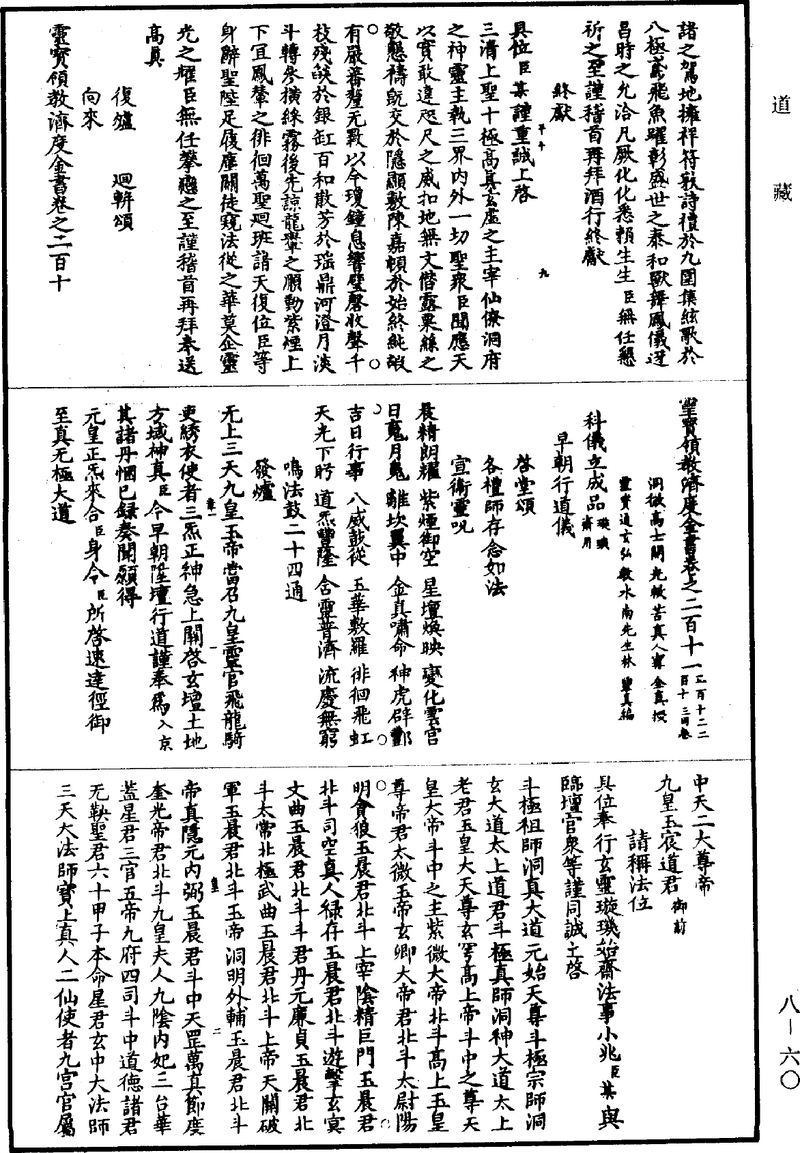 道藏
諸之駕地擁祥符歌詩禮於九圍集絃歌於
八極鳶飛魚躍彰盛世之泰和獸舞鳳儀迓
昌時之允洽凡厥化化悉賴生生臣無任懇
祈之至謹稽首再拜酒行終獻
終獻
具位臣某謹重誠上啓
三清上聖十極高真玄虛之主宰仙僚洞府
之神靈主執三界內外一切聖衆臣聞應天
以實敢違咫尺之威扣地無文僭露栗絲之
敬懇禱既交於隱顯敷陳嘉頓於始終純嘏
有嚴蕃釐无斁以今瓊鐘息響璧磬收聲千
枝殘燄於銀缸百和散芳於瑤鼎河澄月淡
斗轉參橫綵霧後先諒龍轡之顧動紫煙上
下宜鳳輦之徘徊萬聖迴班諸天復位臣等
身辭聖陛足履塵關徒窺法從之華莫企靈
光之耀臣無任攀戀之至謹稽首再拜奉送
高真
復爐 迴軿頌
向來
靈寳領教濟度金書卷之二百十
靈寳領教濟度金書卷之二百十一
洞微高士開光救苦真人寗全真授
靈寳通玄弘教水南先生林靈真編
科儀立成品 璇璣齋用
早朝行道儀
啓堂頌
各禮師存念如法
宣衛靈呪
晨精朗耀 紫煙御空 星壇煥映 變化雲宮
日䰟月䰟 離坎翼中 金真嘯命 神虎辟酆
吉日行事 八威鼓從 五華敷羅 徘徊飛虹
天光下眄 道炁豐隆 含靈普濟 流慶無窮
鳴法鼓二十四通
發爐
无上三天九皇玉帝當召九皇靈官飛龍騎
吏綉衣使者三炁正神急上關啓玄壇土地
方域神真臣今早朝陞壇行道謹奉爲入京
其諸丹悃已録奏聞願得
元皇正炁來合臣身令臣所啓速達徑御
至真无極大道
中天二大尊帝
九皇玉宸道君御前
請稱法位
具位奉行玄靈璇璣始齋法事小兆臣某與
臨壇官衆等謹同誠上啓
斗極祖師洞真大道元始天尊斗極宗師洞
玄大道太上道君斗極真師洞神大道太上
老君玉皇大天尊玄穹高上帝斗中之尊天
皇大帝斗中之主紫微大帝北斗高上玉皇
尊帝君太微玉帝玄卿大帝君北斗太尉陽
明貪狼玉晨君北斗上宰陰精巨門玉晨君
北斗司空真人祿存玉晨君北斗遊擊玄冥
文曲玉晨君北斗斗君丹元廉貞玉晨君北
斗太常北極武曲玉晨君北斗上帝天關破
軍玉晨君北斗玉帝洞明外輔玉晨君北斗
帝真隱元內弼玉晨君斗中天罡萬真節度
奎光帝君北斗九皇夫人九陰內妃三台華
蓋星君三官五帝九府四司斗中道德諸君
无鞅聖君六十甲子本命星君玄中大法師
三天大法師寳上真人二仙使者九宫官屬
八-六〇